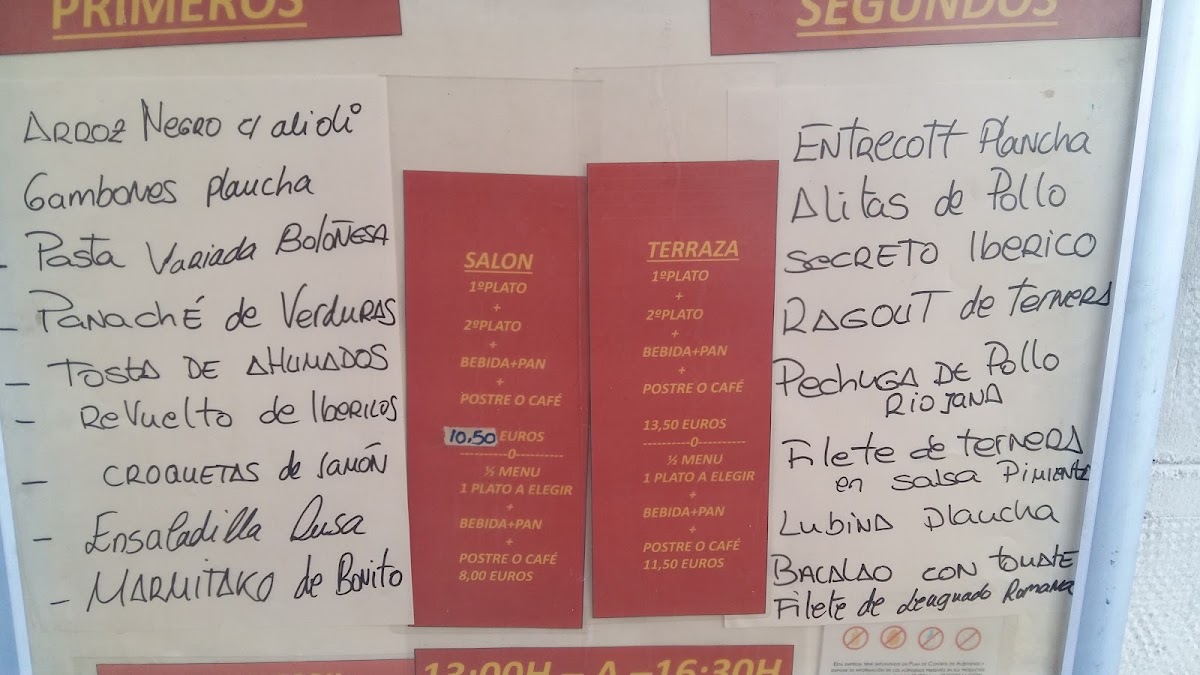 PRIMEROS
ARROZ NEGRO c/ alioli
Gambones plancha
- Pasta Variada Boloñesa
- Panaché de Verduras
- Tosta DE AHUMADOS
- Revuelto de Ibericos
- CROQUETAS de Jamón
- Ensaladilla Rusa
- MARMITAKO de Bonito
SALON
1ºPLATO
+
2ºPLATO
+
BEBIDA+PAN
+
POSTRE O CAFÉ
10,50 EUROS
----------0----------
½ MENU
1 PLATO A ELEGIR
+
BEBIDA+PAN
+
POSTRE O CAFÉ
8,00 EUROS
TERRAZA
1ºPLATO
+
2ºPLATO
+
BEBIDA+PAN
+
POSTRE O CAFÉ
13,50 EUROS
----------0----------
½ MENU
1 PLATO A ELEGIR
+
BEBIDA+PAN
+
POSTRE O CAFÉ
11,50 EUROS
SEGUNDOS
ENTRECOTT Plancha
Alitas de Pollo
SECRETO IBERICO
RAGOUT de Ternera
Pechuga DE Pollo
RIOJANA
Filete de Ternera
en salsa Pimienta
Lubina plancha
BACALAO CON TOMATE
Filete de Lenguado Romana
13:00H – A –16:30H